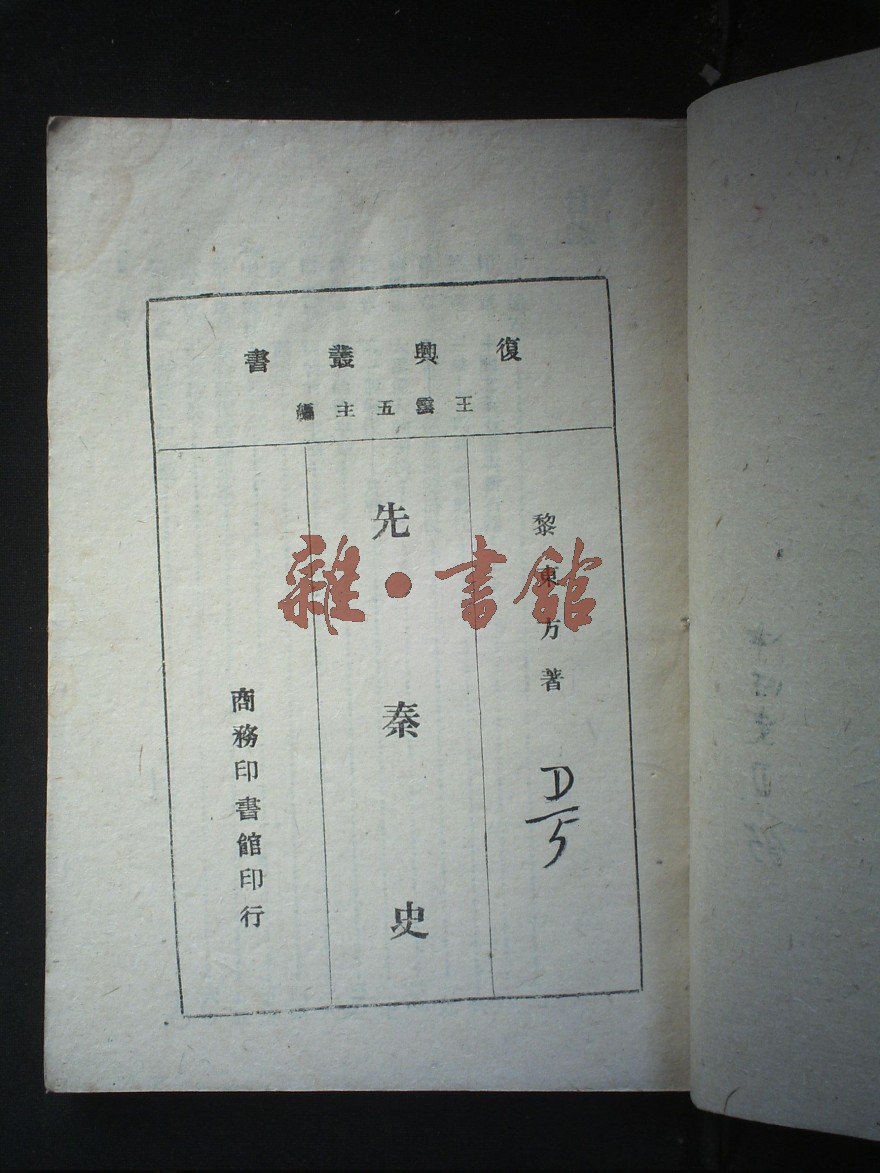 復興叢書
王雲五主編
黎東方著
D/5
先秦史
商務印書館印行
雜·書館